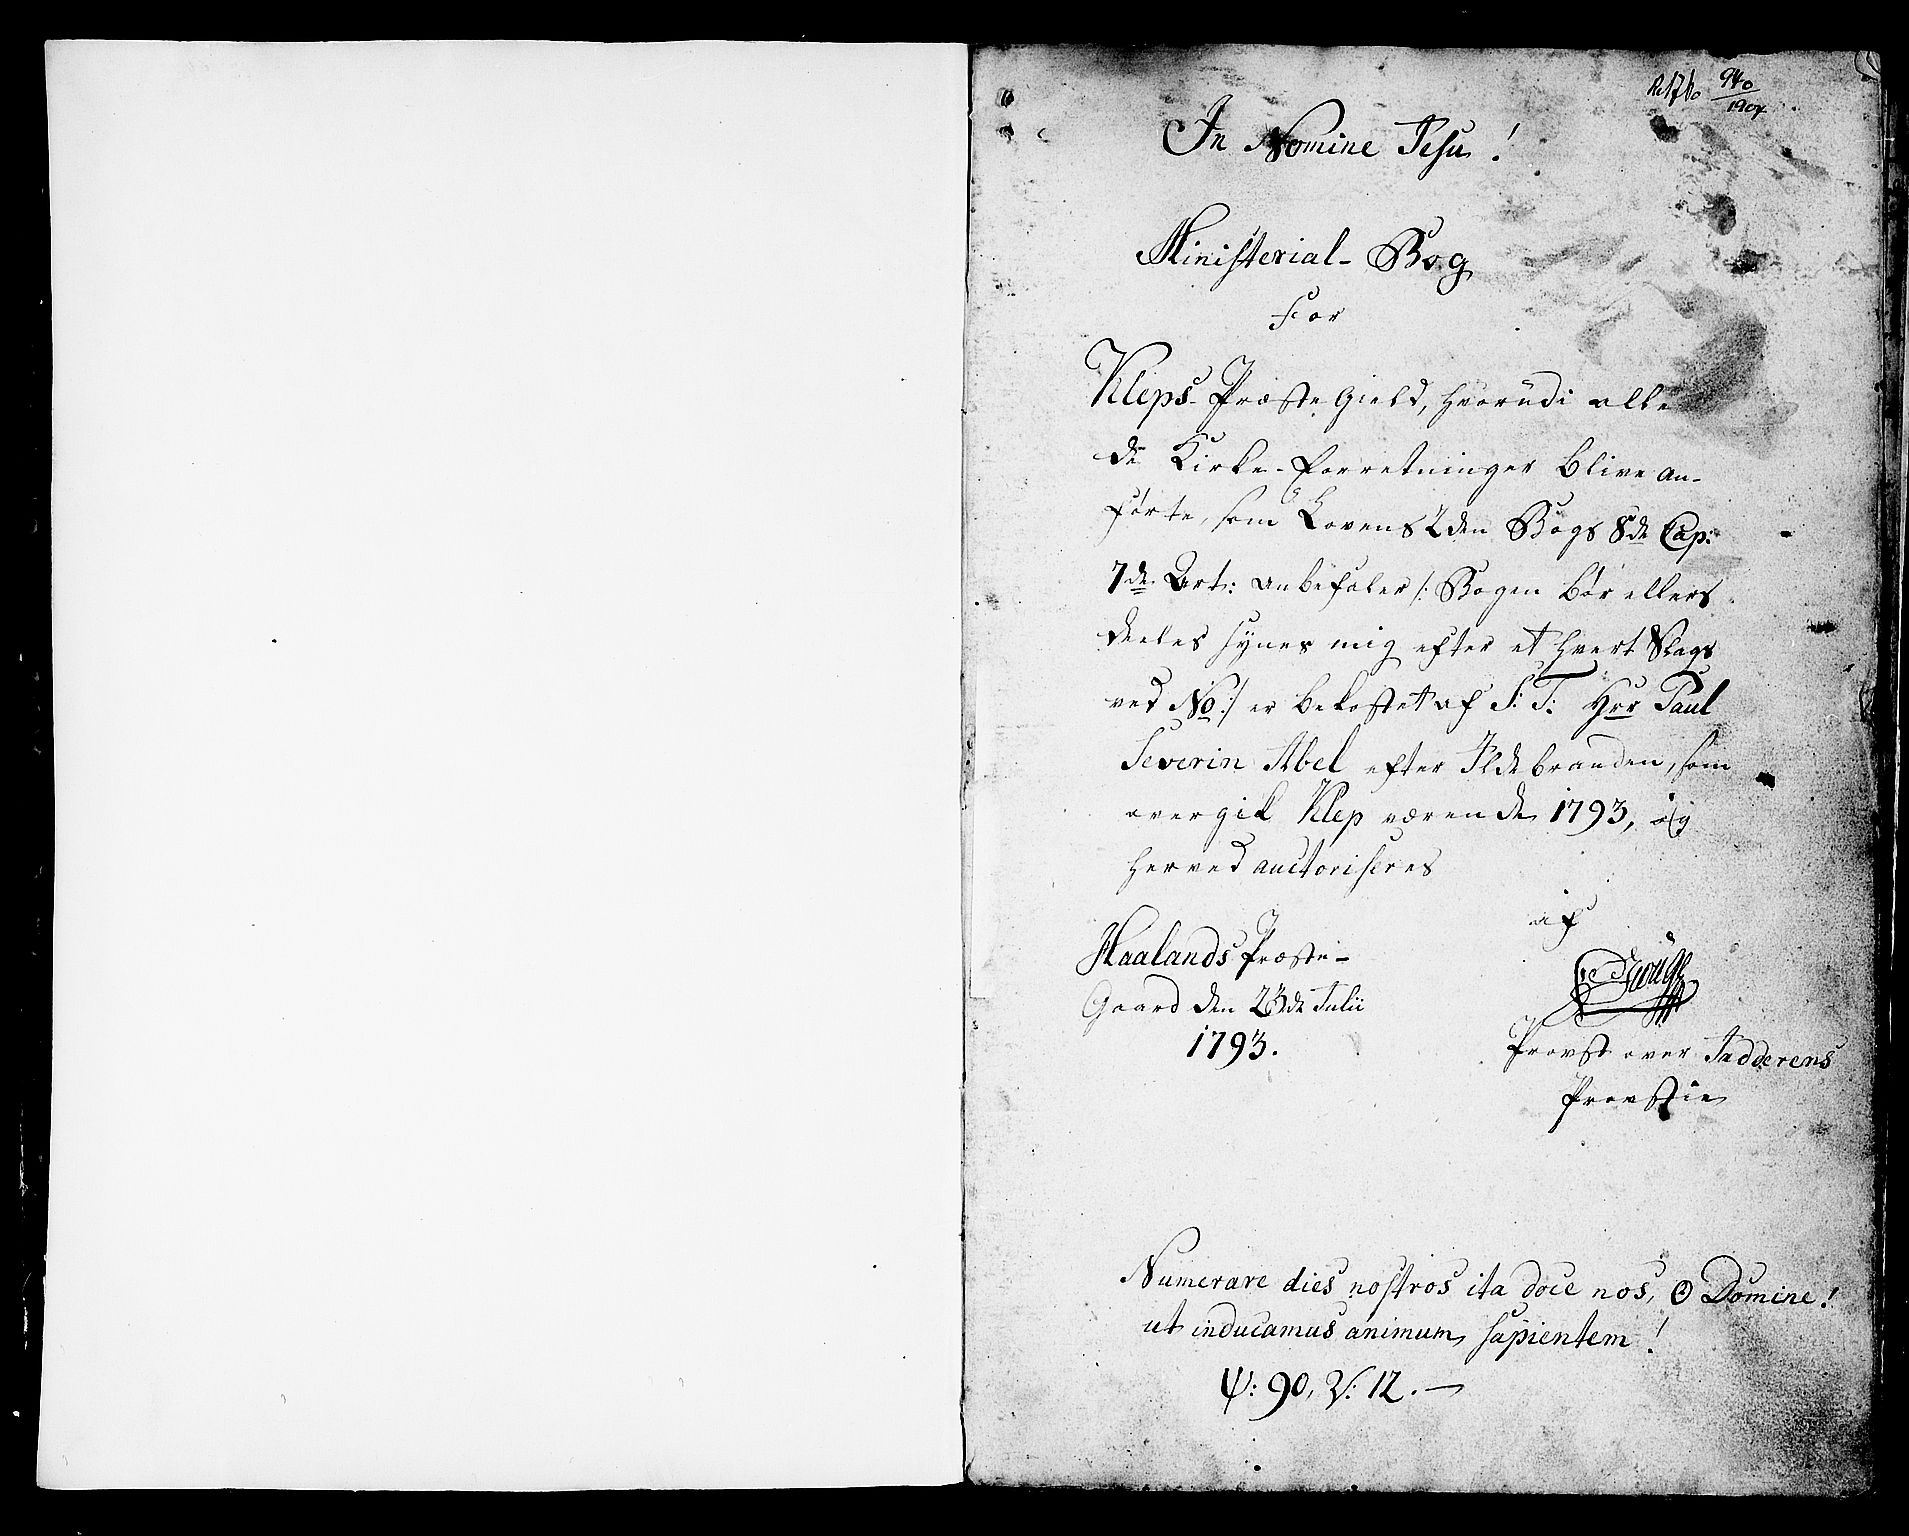 940
1904
In Nomine Jesu!
Ministerial-Bog
for
Kleps-Præste Gield, hvorudi alle
de Kirke-Forretninger blive an-
førte, som Lovens 2den Bogs 8de Cap:
7de Art: anbefaler /: Bogen bør ellers
deeles synes mig efter et hvert Slags
ved No :/ er bekostet af S: T: Herr Paul
Severin Abel efter Ildebranden, som
overgik Klep værende 1793, og
herved auctoriseres
af
Haalands Præste-
Gaard den 23de Julii
1793.
Provst over Jadderens
Provstie
Numerare dies nostros ita doce nos, O Domine!
ut inducamus animum sapientem!
Ψ: 90, V: 12. —